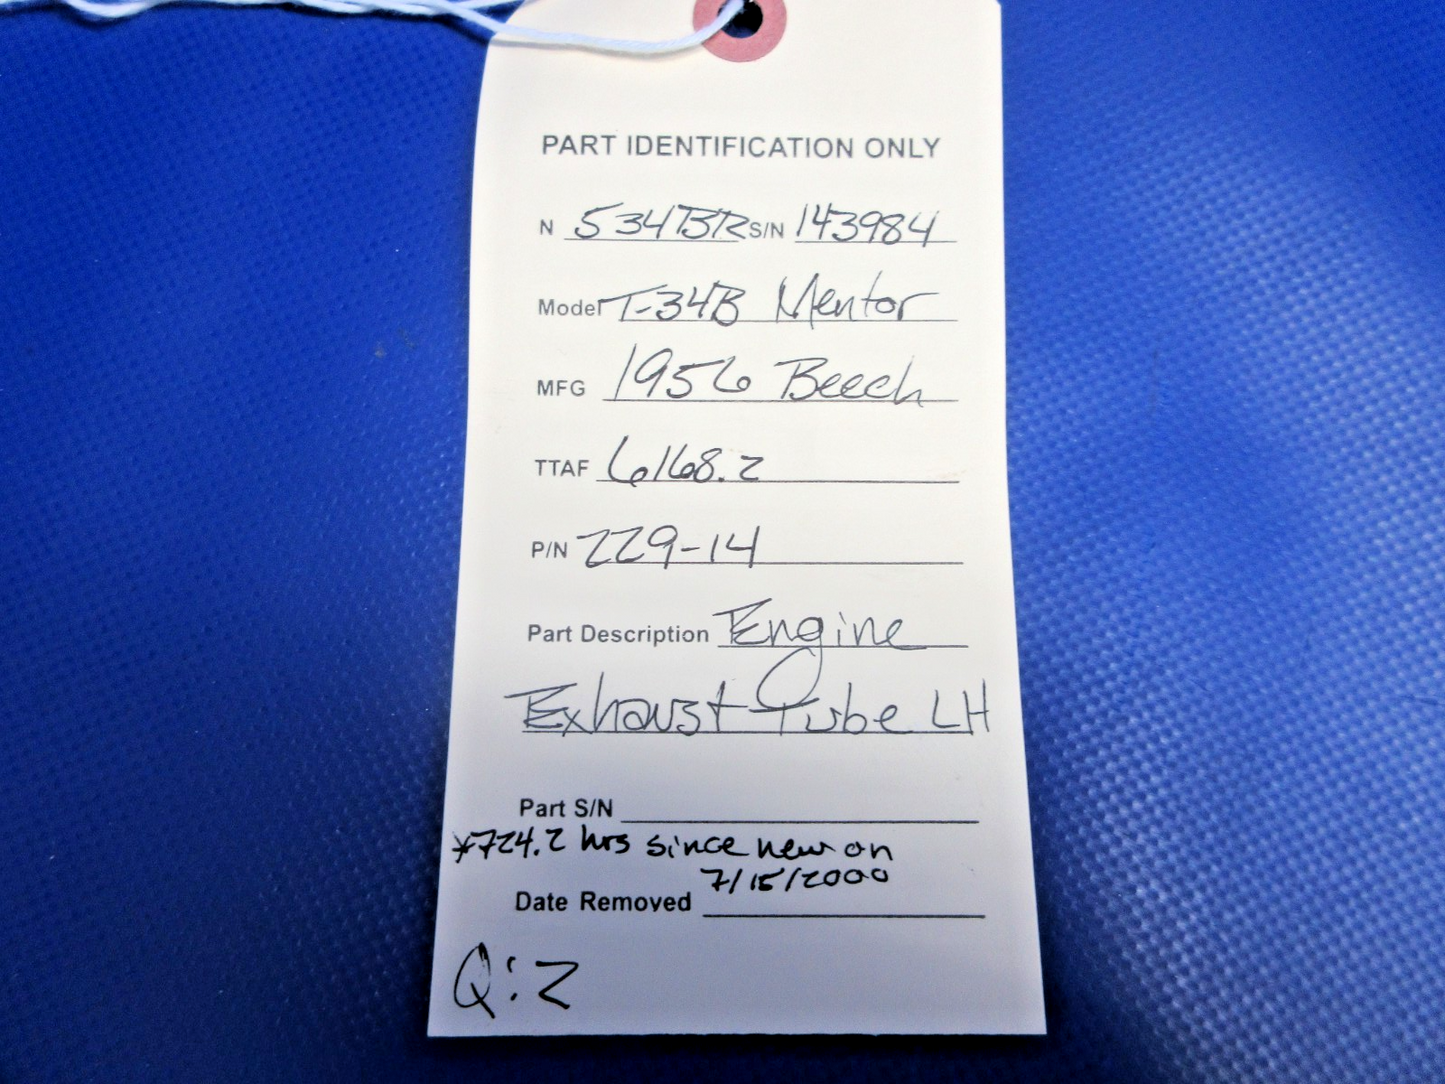 PART IDENTIFICATION ONLY
N 534BR S/N 143984
Model T-34B Mentor
MFG 1956 Beech
TTAF 6168.2
P/N 229-14
Part Description Engine
Exhaust Tube LH
Part S/N
*724.2 hrs since new on
7/15/2000
Date Removed
Q:2